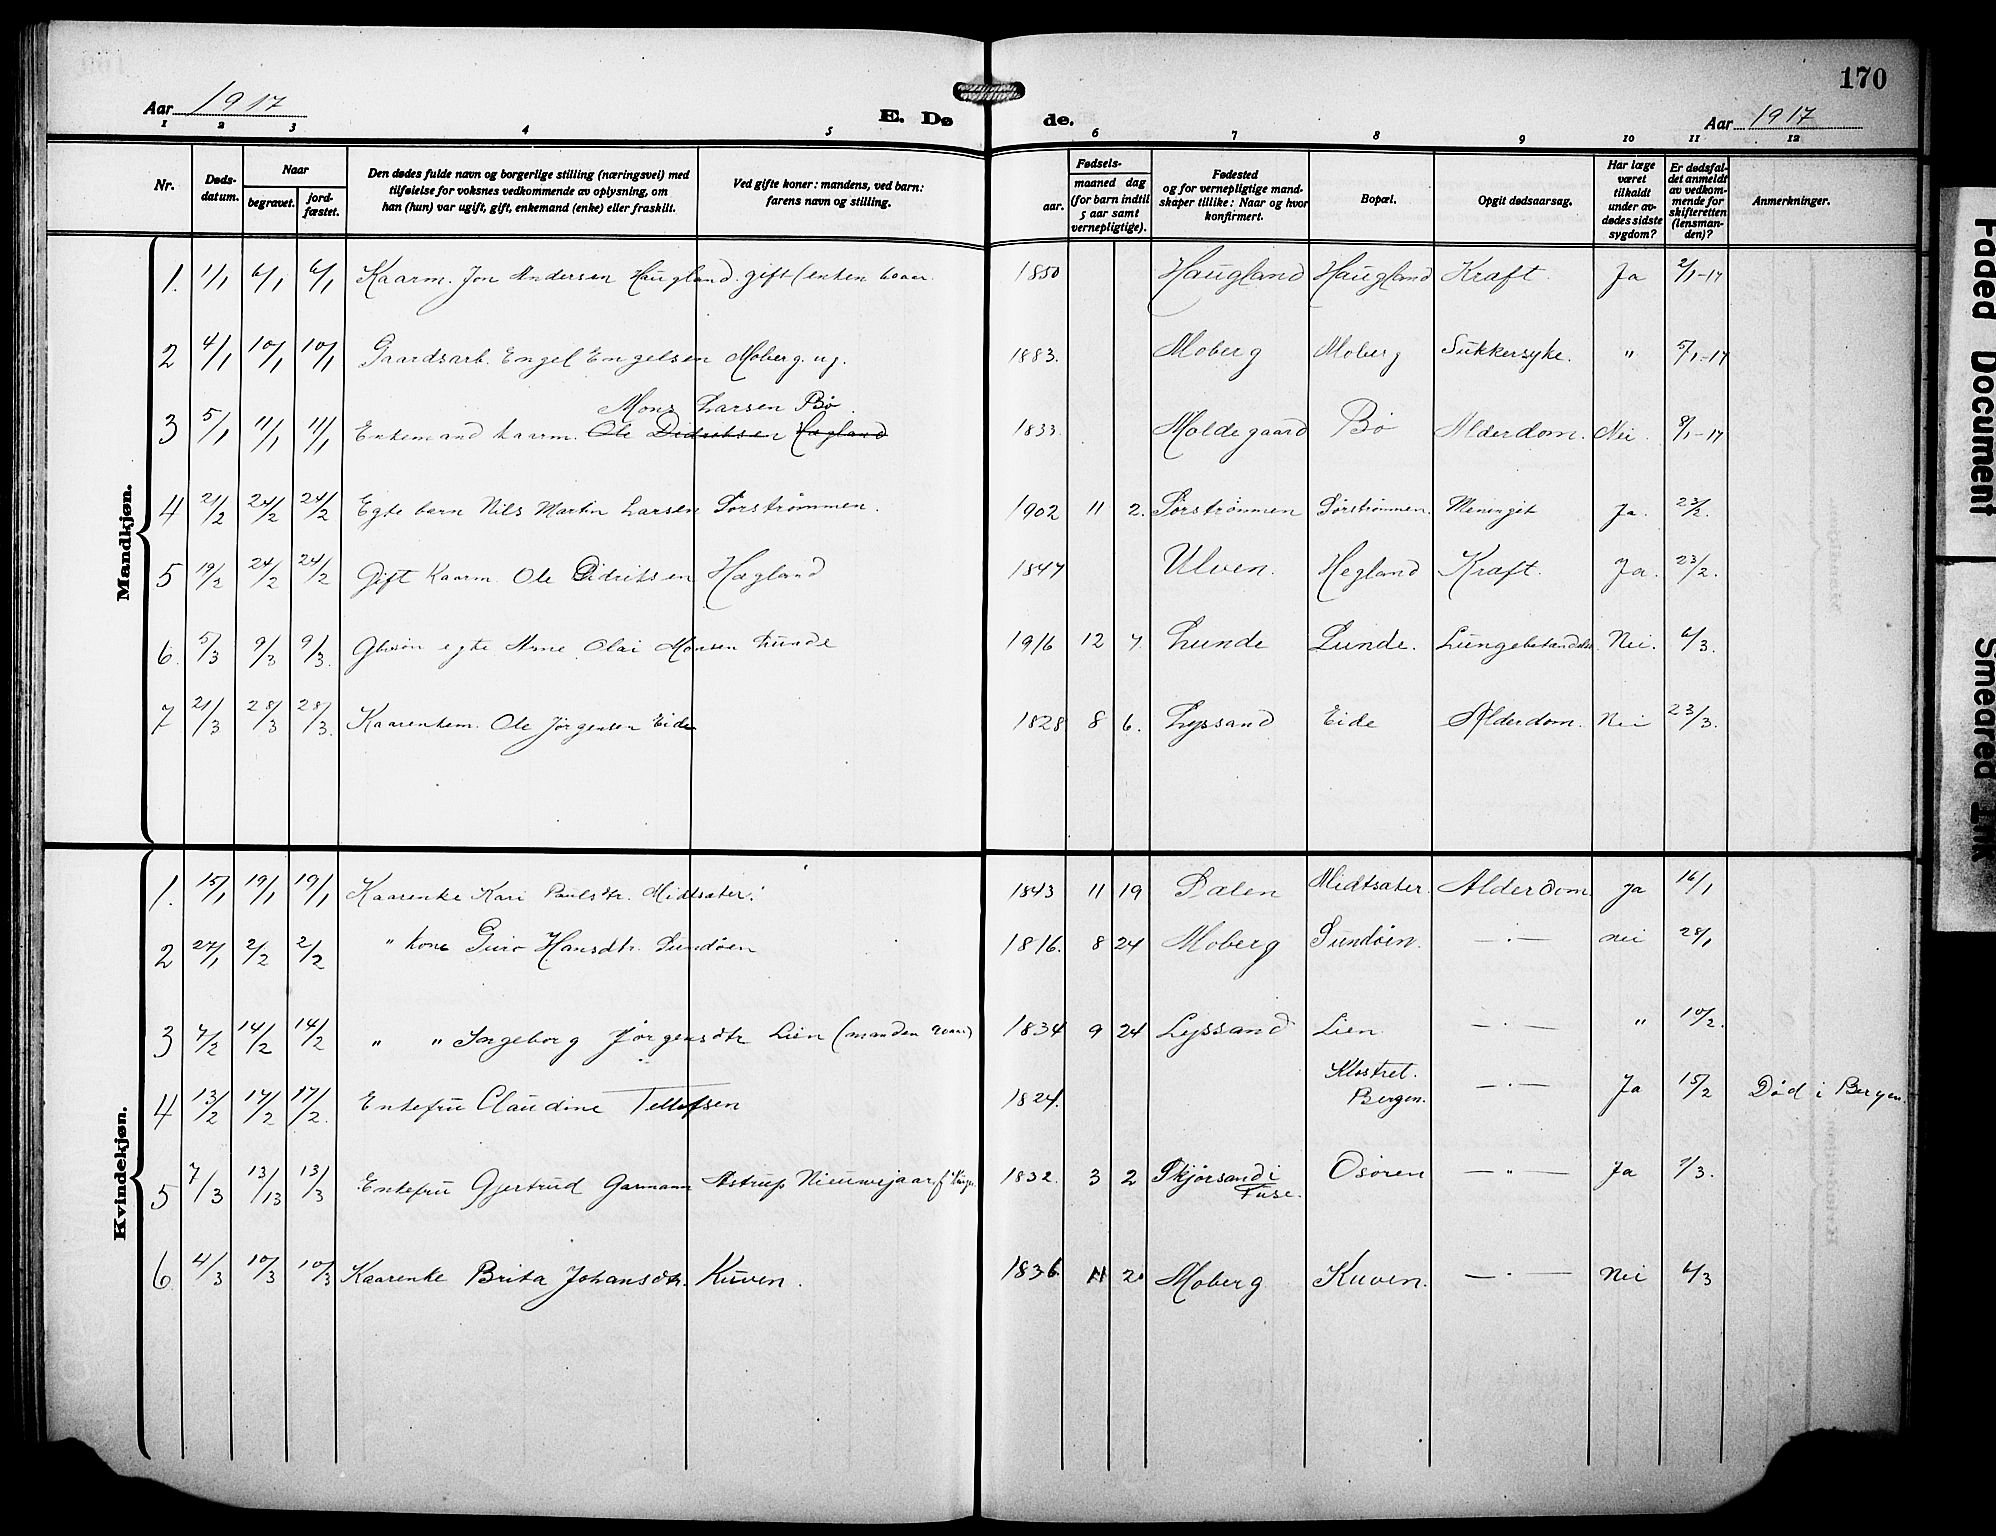 170
Aar 1917
E. Dø de.
Aar 1917
1 2 3 4 5 6 7 8 9 10 11 12
Nr.
Døds-
datum.
Naar
begravet.
jord-
fæstet.
Den dødes fulde navn og borgerlige stilling (næringsvei) med
tilføielse for voksnes vedkommende av oplysning, om
han (hun) var ugift, gift, enkemand (enke) eller fraskilt.
Ved gifte koner: mandens, ved barn:
farens navn og stilling.
Fødsels-
aar.
maaned dag
(for barn indtil
5 aar samt
vernepligtige).
Fødested
og for vernepligtige mand-
skaper tillike: Naar og hvor
konfirmert.
Bopæl.
Opgit dødsaarsag.
Har læge
været
tilkaldt
under av-
dødes sidste
sygdom?
Er dødsfal-
det anmeldt
av vedkom-
mende for
skifteretten
(lensman-
den)?
Anmerkninger.
Mandkjøn.
1. 1/1 6/1 6/1 Kaarm. Jon Andersen Haugland. gift (enken 60 aar. 1850 Haugland Haugland Kraft. Ja 2/1-17
2 4/1 10/1 10/1 Gaardsarb. Engel Engelsen Moberg. ug. 1883. Moberg Moberg Sukkersyke. " 5/1-17
Mons Larsen Bø
3 5/1 11/1 11/1 Enkemand kaarm. Ole Didriksen Hægland 1833. Moldegaard Bø Alderdom. Nei. 8/1-17
4 21/2 24/2 24/2 Egte barn Nils Martin Larsen Sørstrømmen. 1902 11 2. Sørstrømmen Sørstrømmen. Meningit Ja. 23/2.
5 19/2 24/2 24/2 Gift Kaarm. Ole Didriksen Hægland 1847 Ulven. Hegland Kraft. Ja. 23/2.
6. 5/3 9/3 9/3. egte Arne Olai Monsen Lunde 1916 12 7. Lunde Lunde. Lungebetændelse Nei. 6/3.
7 21/3 28/3 28/3. Kaarenkem. Ole Jørgensen Eide 1828 8 6. Lyssand Eide Alderdom. Nei 23/3.
Kvindekjøn.
1. 15/1 19/1 19/1 Kaarenke Kari Paulsdtr. Midtsæter. 1843 11 19 Dalen Midtsæter. Alderdom Ja 16/1
2 27/1 2/2 2/2 " kone Guro Hansdtr. Sundøen 1816. 8 24 Moberg Sundøen. — . — nei 28/1
3 7/2 14/2 14/2 " " Ingeborg Jørgensdtr Lien (manden 1834 9 24 Lyssand Lien. — . — " 10/2.
4 13/2 17/2 17/2. Enkefru Claudine Tellefsen 1824. Klostret. Bergen. — . — Ja 15/2 Død i Bergen.
5 7/3 13/13 13/3 Enkefru Gjertrud Garmann Astrup Nieuwejaar f. Krüger 1832. 3 2 Skjørsand i Fuse. Osøren — " — Ja
6 4/3 10/3 10/3 Kaarenke Brita Johansdtr. Kuven. 1836. 11 20 Moberg Kuven. — . — Nei 6/3
Faded Document
Smeared Ink